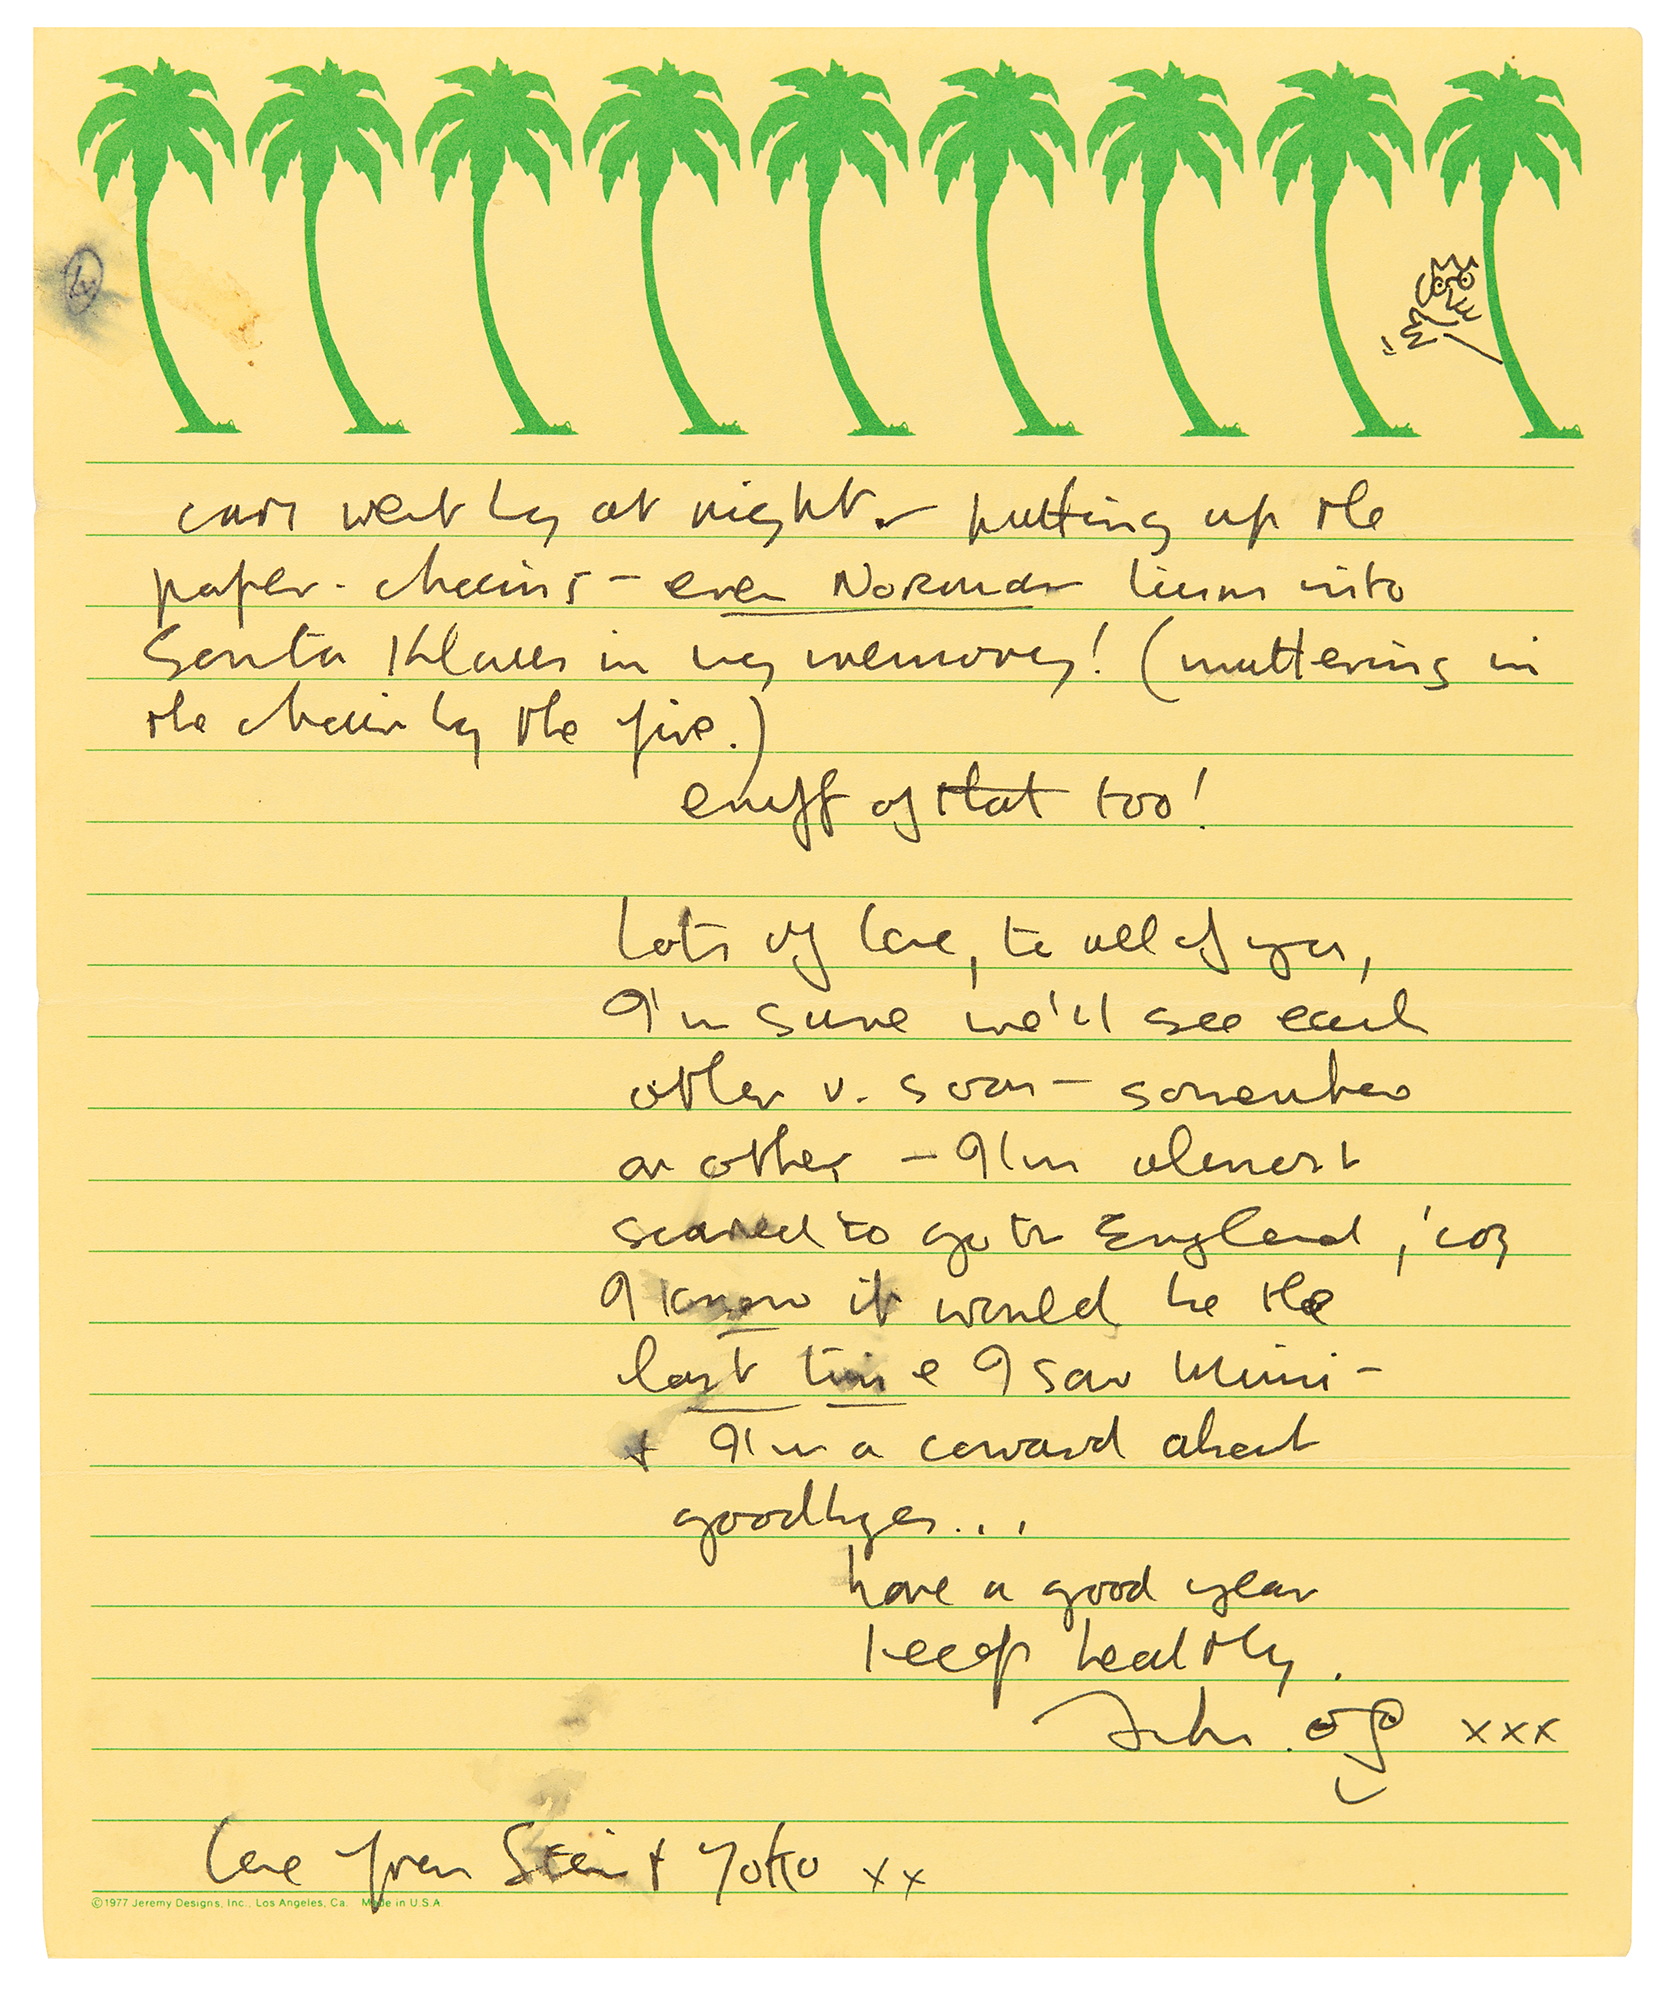 4
cars went by at night - putting up the
paper-chains - even Norman turns into
Santa Klaus in my memory! (muttering in
the chair by the fire.)
enuff of that too!
Lots of love, to all of you,
I'm sure we'll see each
other v. soon - somewhere
or other - I'm almost
scared to go to England, 'coz
I know it would be the
last time I saw Mimi -
+ I'm a coward about
goodbyes...
have a good year
keep healthy.
John. xxx
love from Sean + Yoko xx
©1977 Jeremy Designs, Inc., Los Angeles, Ca. Made in U.S.A.